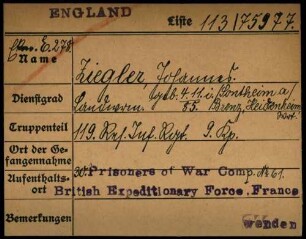 ENGLAND
Liste 113/75977.
E.278
Name
Ziegler Johannes.
geb. 4.11.
Dienstgrad Landwrm. 85. Brenz, Heidenheim
Truppenteil 119. Res. Inf. Regt. 9. Kp.
Ort der Ge-
fangennahme
Aufenthalts-
ort
30. Prisoners of War Comp. No 61.
British Expeditionary Force, France
Bemerkungen wenden